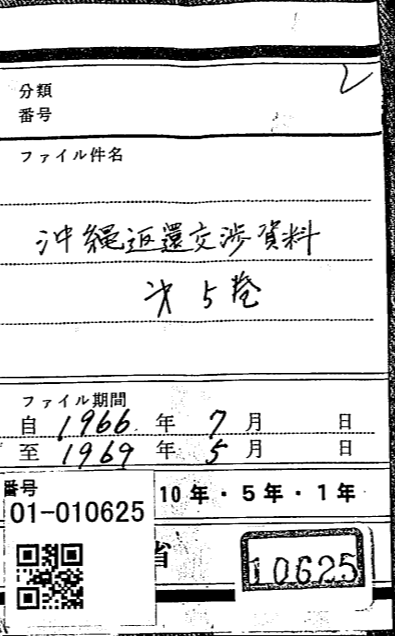 分類
番号
ファイル件名
沖縄返還交渉資料
第5巻
ファイル期間
自 1966 年 7 月 日
至 1969 年 5 月 日
番号
01-010625
10年・5年・1年
省
10625